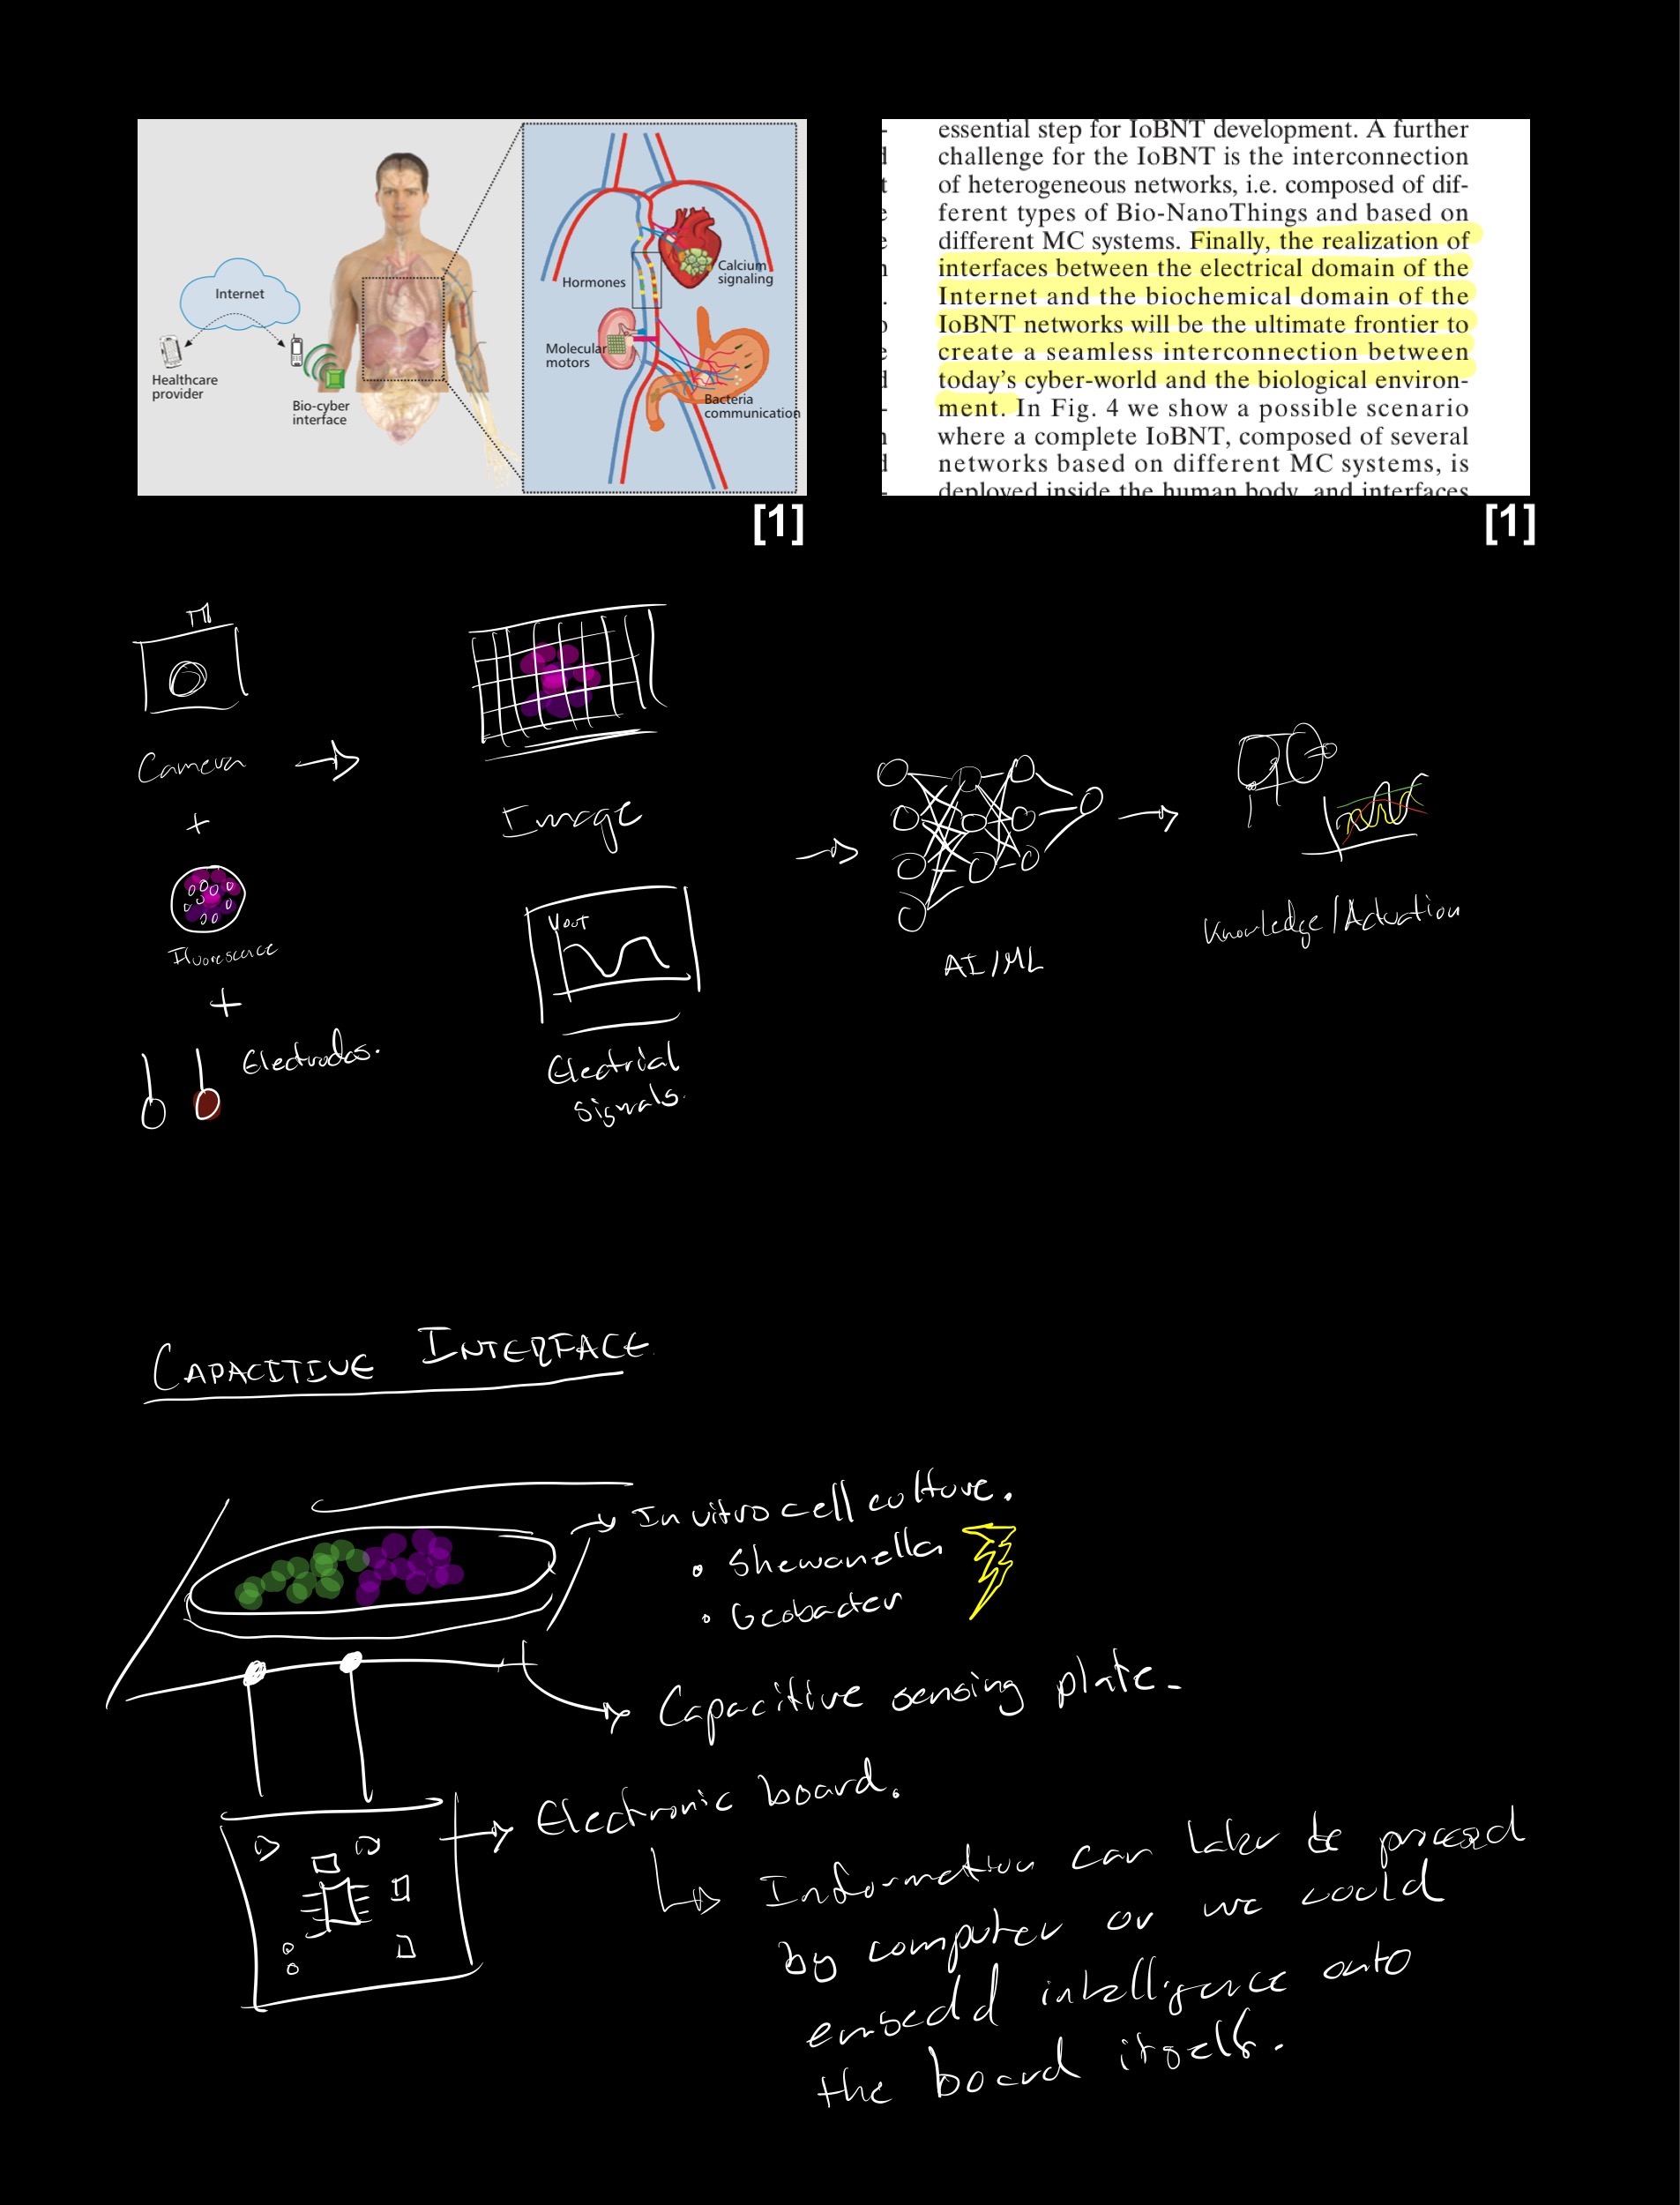 Internet
Healthcare
provider
Bio-cyber
interface
Hormones
Calcium
signaling
Molecular
motors
Bacteria
communication
[1]
essential step for IoBNT development. A further
challenge for the IoBNT is the interconnection
of heterogeneous networks, i.e. composed of dif-
ferent types of Bio-NanoThings and based on
different MC systems. Finally, the realization of
interfaces between the electrical domain of the
Internet and the biochemical domain of the
IoBNT networks will be the ultimate frontier to
create a seamless interconnection between
today's cyber-world and the biological environ-
ment. In Fig. 4 we show a possible scenario
where a complete IoBNT, composed of several
networks based on different MC systems, is
deployed inside the human body, and interfaces
[1]
Camera
+
Fluorescence
+
Electrodes.
Image
Vout
Electrial
Signals.
AI/ML
Knowledge/Actuation
CAPACITIVE INTERFACE
In vitro cell culture.
• Shewanella
• Geobacter
Capacitive sensing plate.
Electronic board.
Information can later be procesed
by computer or we could
embedd intelligence onto
the board itself.